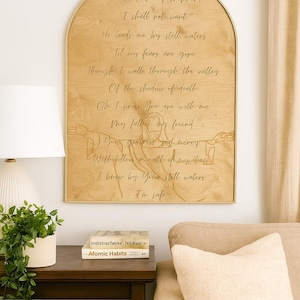 I shall not want
He leads me by still waters
'Til my fears are gone
Through I walk through the valley
Of the shadow of death
Oh I know You are with me
My father my friend
Your goodness and mercy
With follow me all of my days
I know by Your still waters
I'm safe
Indistractable
Atomic Habits